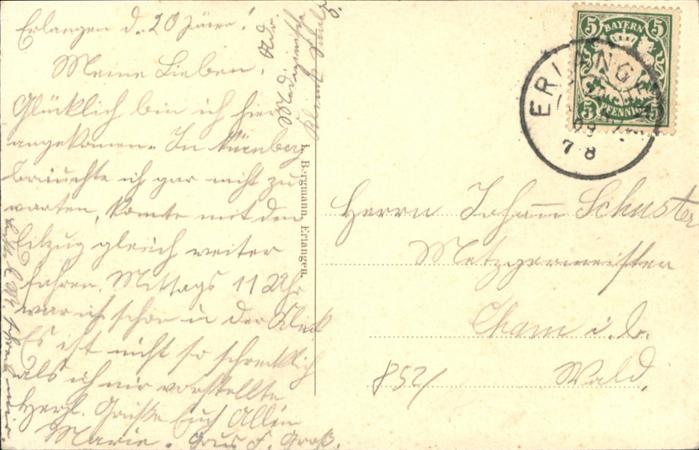 Erlangen d. 20
Meine Lieben.
Glücklich bin ich hier
angekommen. In Nürnberg
brauchte ich gar nicht zu
warten, konnte mit den
Eilzug gleich weiter
fahren. Mittags 11 Uhr
war ich schon in der Klinik
Es ist nicht so schrecklich
als ich mir vorstellte
Herzl. Grüße Euch Allen
Marie. Grus F. Groß.
Adr.
Medizinische
Klinik
L. Bergmann, Erlangen.
5 BAYERN 5
5 PFENNIG 5
ERLANGEN
09
7-8
Herrn Johann Schuster
Metzgermeister
Cham i. b.
Wald.
852/